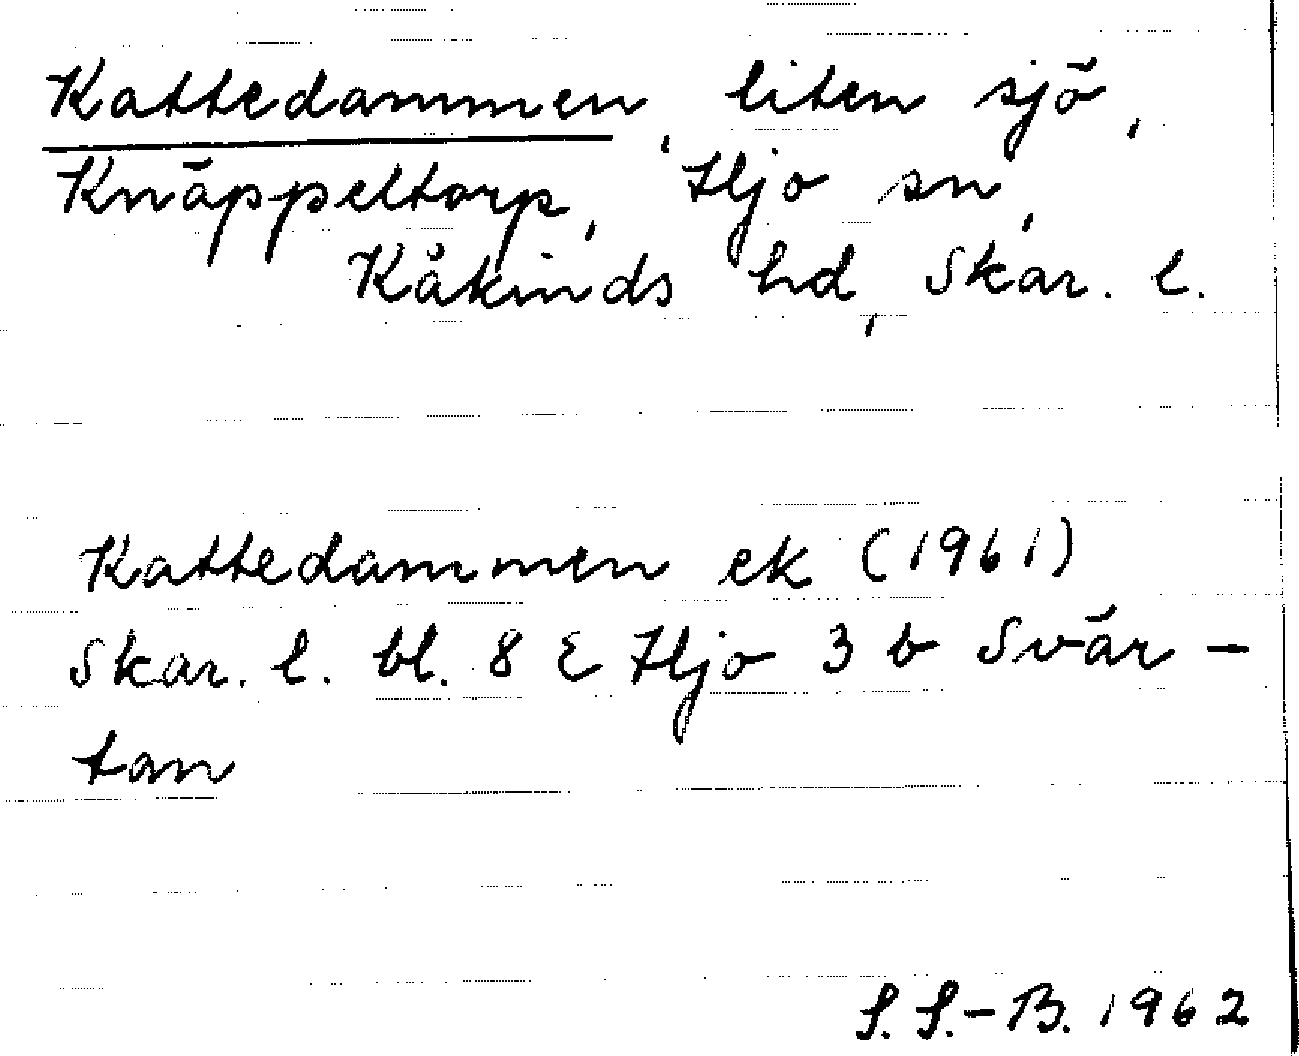 Kattedammen, liten sjö,
Knäppeltorp, Hjo sn,
Kåkinds hd, Skar. l.
Kattedammen ek (1961)
Skar. l. bl. 8 E Hjo 3 b Svär-
tan
S. S.-B. 1962